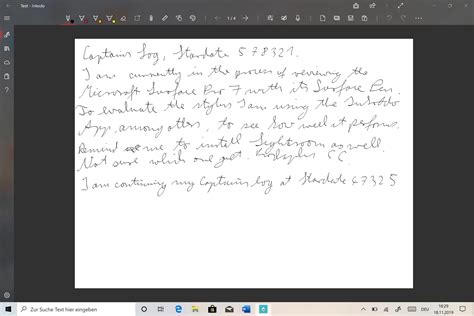 Test - Inkodo
1/4
Captains Log, Stardate 578321.
I am currently in the process of reviewing the
Microsoft Surface Pro 7 with its Surface Pen.
To evaluate the stylus I am using the Inkodo
App, among others, to see how well it performs.
Remind me to install Lightroom as well.
Not sure which one yet. CC
I am continuing my Captains log at Stardate 47325
Zur Suche Text hier eingeben
DEU
16:29
18.11.2019